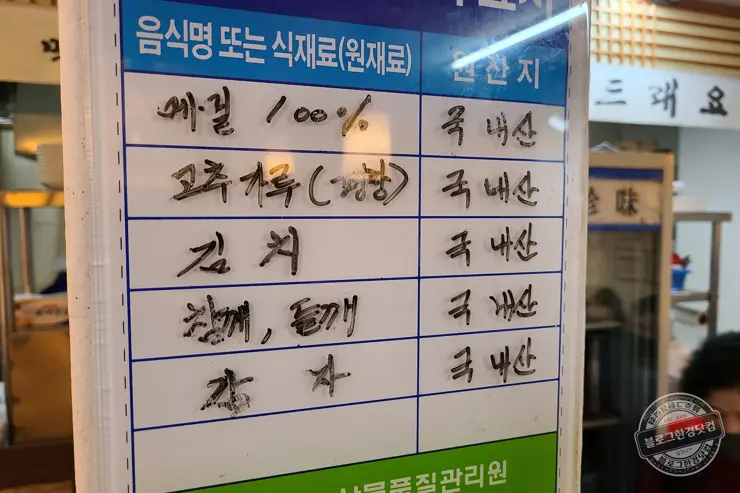 음식명 또는 식재료(원재료) 원산지
메밀 100% 국내산
고추가루(평창) 국내산
김치 국내산
참깨, 들깨 국내산
감자 국내산
품질관리원
드래요
珍味
블로그한경닷컴